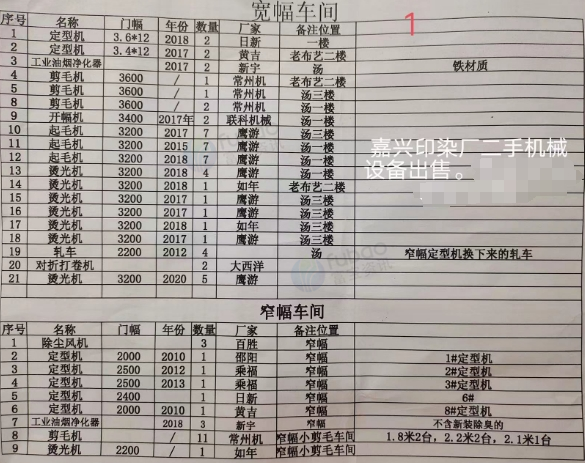 宽幅车间
1
序号 名称 门幅 年份 数量 厂家 备注位置
1 定型机 3.6*12 2018 2 日新 一楼
2 定型机 3.4*12 2017 2 黄吉 老布艺二楼
3 工业油烟净化器 2017 2 新宇 汤 铁材质
4 剪毛机 3600 / 1 常州机 汤一楼
5 剪毛机 3600 / 1 常州机 汤三楼
8 剪毛机 3600 / 2 常州机 汤一楼
9 开幅机 3400 2017年 2 联科机械 汤一楼
10 起毛机 3200 2017 7 鹰游 汤三楼
11 起毛机 3200 2015 7 鹰游 汤一楼
12 起毛机 3200 2018 7 鹰游 汤一楼
13 烫光机 3200 2018 4 鹰游 汤一楼
14 烫光机 3200 2018 1 如年 老布艺二楼
15 烫光机 3200 2017 1 鹰游 汤三楼
16 烫光机 3200 2017 1 鹰游 汤三楼
17 烫光机 3200 2018 1 如年 汤三楼
18 烫光机 3200 2017 1 鹰游 汤三楼
19 轧车 2200 2012 4 汤 窄幅定型机换下来的轧车
20 对折打卷机 2 大西洋
21 烫光机 3200 2020 5 鹰游
嘉兴印染厂二手机械
设备出售。
rubao
窄幅车间
序号 名称 门幅 年份 数量 厂家 备注位置
1 除尘风机 3 百胜 窄幅
2 定型机 2000 2010 1 邵阳 窄幅 1#定型机
3 定型机 2500 2012 1 乘福 窄幅 2#定型机
4 定型机 2500 2013 1 乘福 窄幅 3#定型机
5 定型机 2400 1 日新 窄幅 6#
6 定型机 2000 2010 1 黄吉 窄幅 8#定型机
7 工业油烟净化器 2018 3 新宇 窄幅 不含新装除臭的
8 剪毛机 / 11 常州机 窄幅小剪毛车间 1.8米2台，2.2米2台，2.1米1台
9 烫光机 2200 / 1 如年 窄幅小剪毛车间